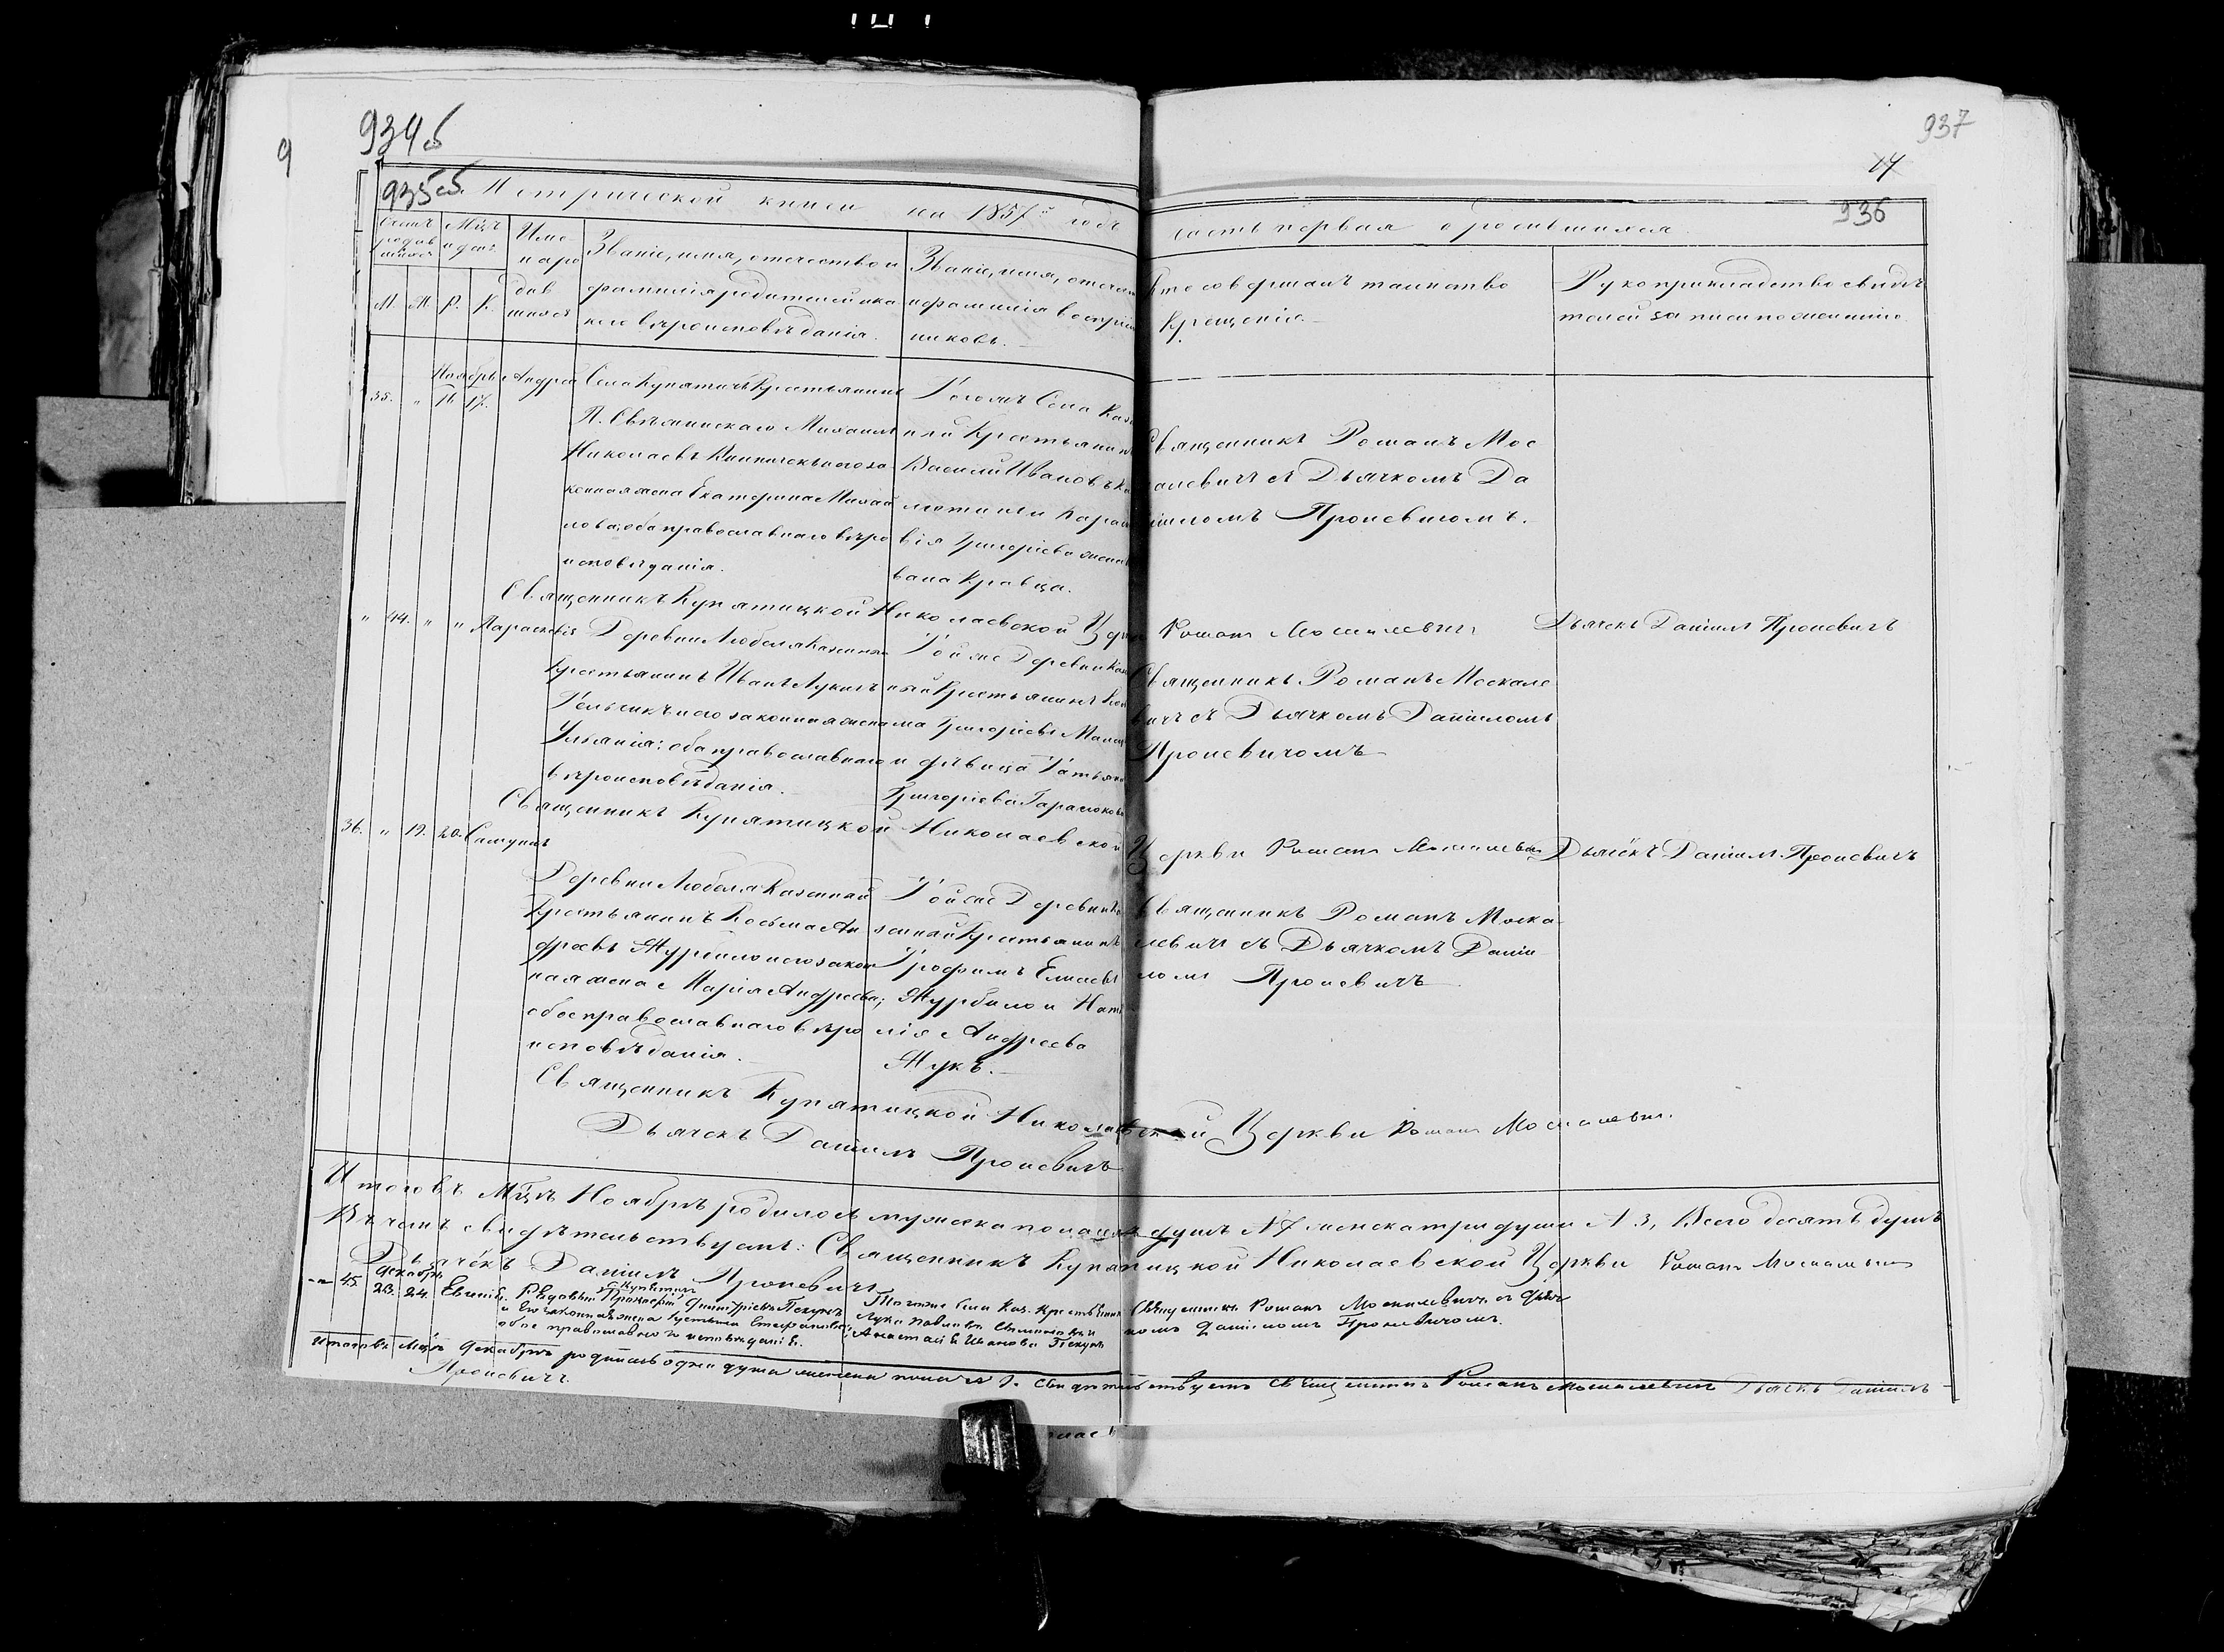 934б
9
937
17
935об. Метрической книги на 1857й годъ часть первая о родившихся.
936
Счетъ родившихся
Мцъ и день
Име народившихся
М. Ж. Р. К.
Званіе, имя, отечество и
фамилія родителей и ка
кого вѣроисповѣданія.
Званіе, имя, отечес
и фамилія воспріем
никовъ.
Кто совершалъ таинство
Крещенія.
Рукоприкладство свидѣ
телей записи по желанію.
Ноябрь
35. " 16 17. Андрей
Села Купятичъ Крестьянинъ
П. Свѣжинскаго Михаилъ
Николаевъ и его за
конная жена Екатерина Михай
лова; оба православнаго вѣро
исповѣданія.
Тогожъ Села Каз
ный Крестьянинъ
Василій Ивановъ
и Параске
вія Григоріева жена
вана Кравца.
Священникъ Романъ Мос
калевичъ съ Дьячкомъ Да
ніиломъ Проневичомъ.
Священникъ Купятицкой Николаевской Церкви Романъ Москалевичъ
Дьячекъ Даніилъ Проневичъ
" 44. " " Параскевія
Деревни Любеля Казенный
Крестьянинъ Иванъ Лукичъ
и его законная жена
Ульянія; оба православнаго
вѣроисповѣданія.
Той же Деревни Казе
ный Крестьянинъ Кось
ма Григоріевъ
и дѣвица Татьяна
Григоріева Гарлюкова
Священникъ Романъ Москале
вичъ съ Дьячкомъ Даніиломъ
Проневичомъ
Священникъ Купятицкой Николаевской Церкви Романъ Москалевичъ Дьячекъ Даніилъ Проневичъ
36. " 19. 20. Самуилъ
Деревни Любеля Казенный
Крестьянинъ Косьма Ан
дреевъ Журбило и его закон
ная жена Марія Андреева;
обое православнаго вѣро
исповѣданія.
Той же Деревни Ка
зенный Крестьянинъ
Трофимъ Елисеевъ
Журбило и Ната
лія Андреева
Жукъ.
Священникъ Романъ Моска
левичъ съ Дьячкомъ Даніи
ломъ Проневичъ
Священникъ Купятицкой Николаевской Церкви Романъ Москалевичъ.
Дьячекъ Даніилъ Проневичъ
Итого въ Мцѣ Ноябрѣ родилось мужеска пола семь душъ № 7 женска три души № 3, Всего десять душъ
Въ чемъ свидѣтельствуемъ: Священникъ Купятицкой Николаевской Церкви Романъ Москалевичъ
Дьячекъ Даніилъ Проневичъ
Декабрь
" 45. 23. 24. Евгенія.
с. Купятичъ
Рядовый Прокофій Димитріевъ Пекунъ
и его законная жена Іустина Стефанова;
обое православнаго исповѣданія.
Того же села Каз. Крестьянинъ
Лука Павловъ и
Анастасія Иванова Пекунъ
Священникъ Романъ Москалевичъ съ Дьяч
комъ Даніиломъ Проневичомъ.
Итого въ Мцѣ Декабрѣ родилась одна душа женска пола № 1. Свидѣтельствуемъ Священникъ Романъ Москалевичъ Дьячекъ Даніилъ
Проневичъ.